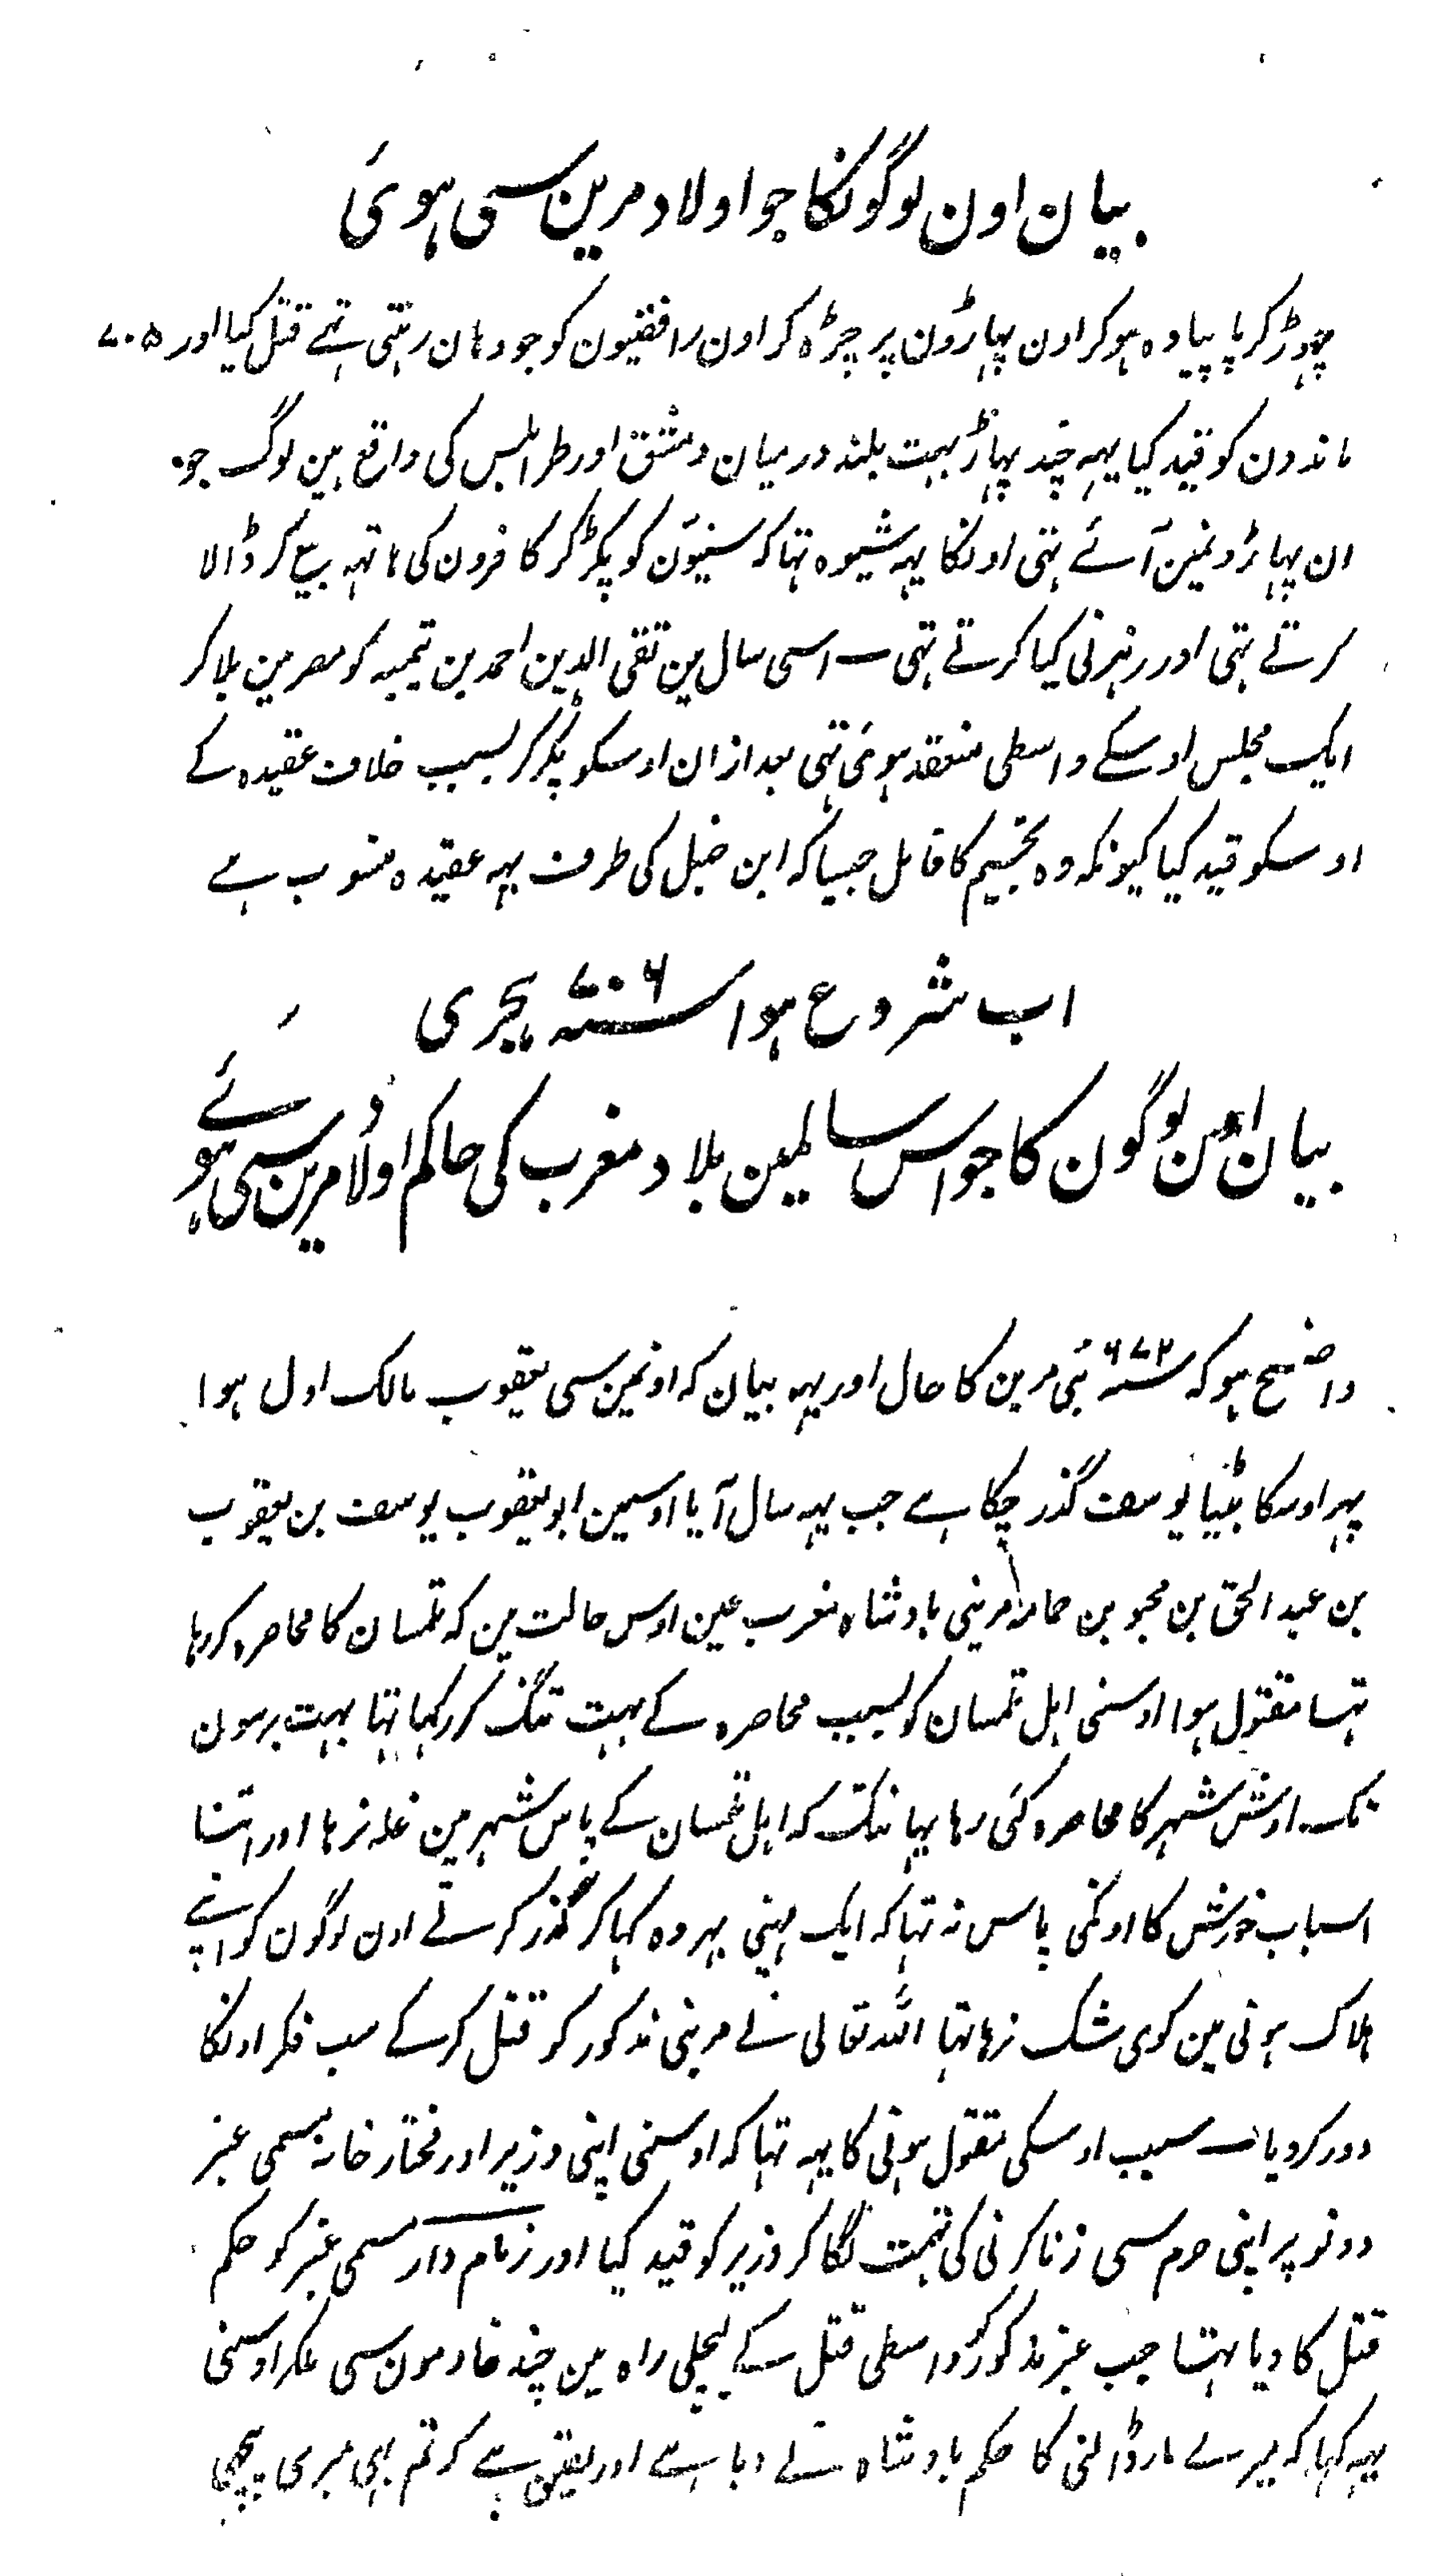 بیان اون لوگونکا جو اولاد مرین سی ہوئی
چہوڑ کر پا پیادہ ہو کر اون پہاڑون پر چڑہ کر اون رافضیون کو جو وہان رہتی تہے قتل کیا اور ۷۰۵
ماندون کو قید کیا یہہ چند پہاڑ بہت بلند درمیان دمشق اور طرابلس کی واقع ہین لوگ جو
ان پہاڑونمین آئے تہی اونکا یہہ شیوہ تہا کہ سنیون کو پکڑ کر کافرون کی ہاتہہ بیع کر ڈالا
کرتے تہی اور رہزنی کیا کرتے تہی اسی سال مین تقی الدین احمد بن تیمیہ کو مصر مین بلا کر
ایک مجلس اوسکے واسطی منعقد ہوئی تہی بعد ازان اوسکو پکڑ کر بسبب خلاف عقیدہ کے
اوسکو قید کیا کیونکہ وہ تجسیم کا قائل جیسا کہ ابن حنبل کی طرف یہہ عقیدہ منسوب ہے
اب شروع ہوا سنہ ۷۰۶ ہجری
بیان اون لوگون کا جو اس سالمین بلاد مغرب کی حاکم اولاد مرین سی ہوئے
واضح ہو کہ سنہ ۶۷۲ بنی مرین کا حال اور یہہ بیان کہ اونمین سی یعقوب مالک اول ہوا
پہر اوسکا بیٹیا یوسف گذر چکا ہے جب یہہ سال آیا اوسمین ابو یعقوب یوسف بن یعقوب
بن عبد الحق بن محیو بن حمامہ مرینی بادشاہ مغرب عین اوس حالت مین کہ تلمسان کا محاصرہ کر رہا
تہا مقتول ہوا اوسنی اہل تلمسان کو بسبب محاصرہ کے بہت تنگ کر رکہا تہا بہت برسون
تک اوس شہر کا محاصرہ کئی رہا یہانتک کہ اہل تلمسان کے پاس شہر مین غلہ نرہا اور اتنا
اسباب خورش کا اونکی پاس نہ تہا کہ ایک مہینی بہر وہ کہا کر گذر کرتے اون لوگون کو اپنے
ہلاک ہونی مین کوی شک نرہا تہا اللہ تعالی نے مرینی مذکور کو قتل کرکے سب فکر اونکا
دور کردیا سبب اوسکی مقتول ہونی کا یہہ تہا کہ اوسنی اپنی وزیر اور مختار خانہ مسمی عنبر
دونو پر اپنی حرم سی زنا کرنی کی تہمت لگا کر وزیر کو قید کیا اور زمام دار مسمی عنبر کو حکم
قتل کا دیا تہا جب عنبر مذکور کو واسطی قتل کے لیچلی راہ مین چند خادمون سی ملکر اوسنی
یہہ کہا کہ میرے مار ڈالنی کا حکم بادشاہ نے دیا ہے اور یقین ہے کہ تم بہی میری پیچہی